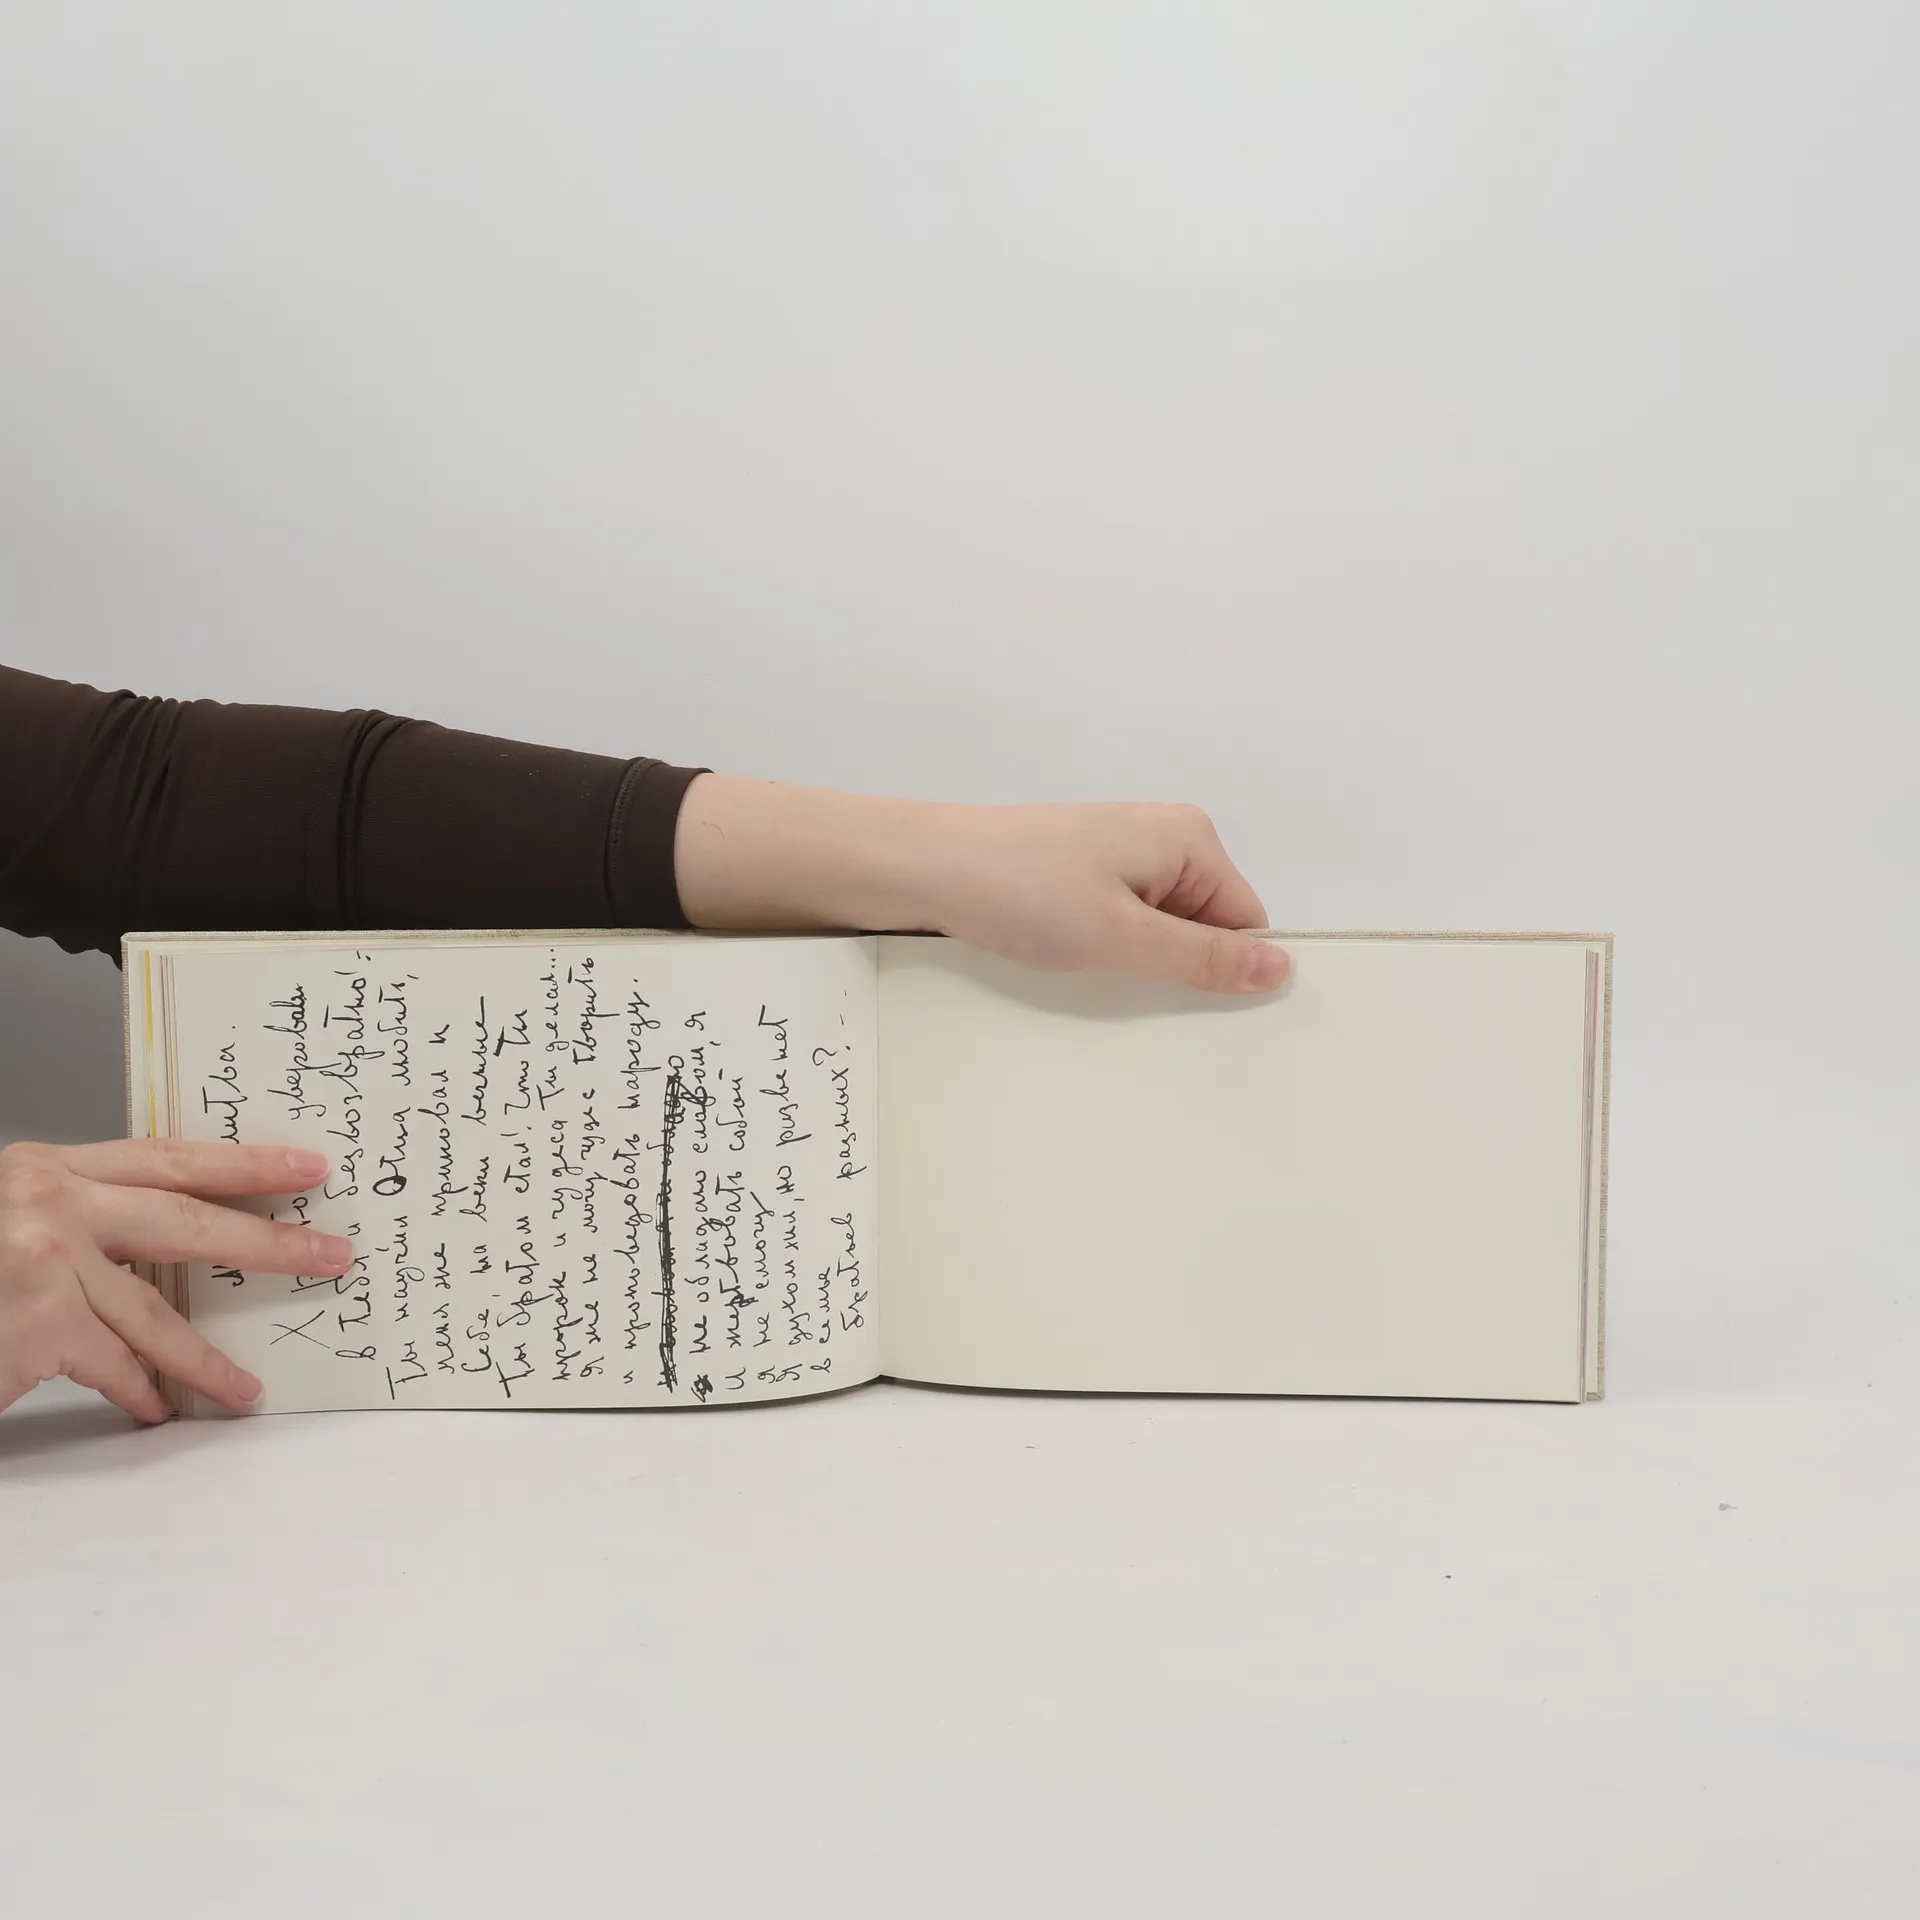 Молитва.
Христос, уверовав
в Тебя и безвозвратно! -
Ты научил Отца любить,
меня же приковал к
Себе, на веки вечные
Ты братом стал! Что Ты
пророк и чудеса Ты делал...
Я же не могу чудес творить
и проповедовать народу.
не обладаю словом, я
И жертвовать собой
я не смогу
Я духом хил, но разве нет
в семье
братьев разных? . - -